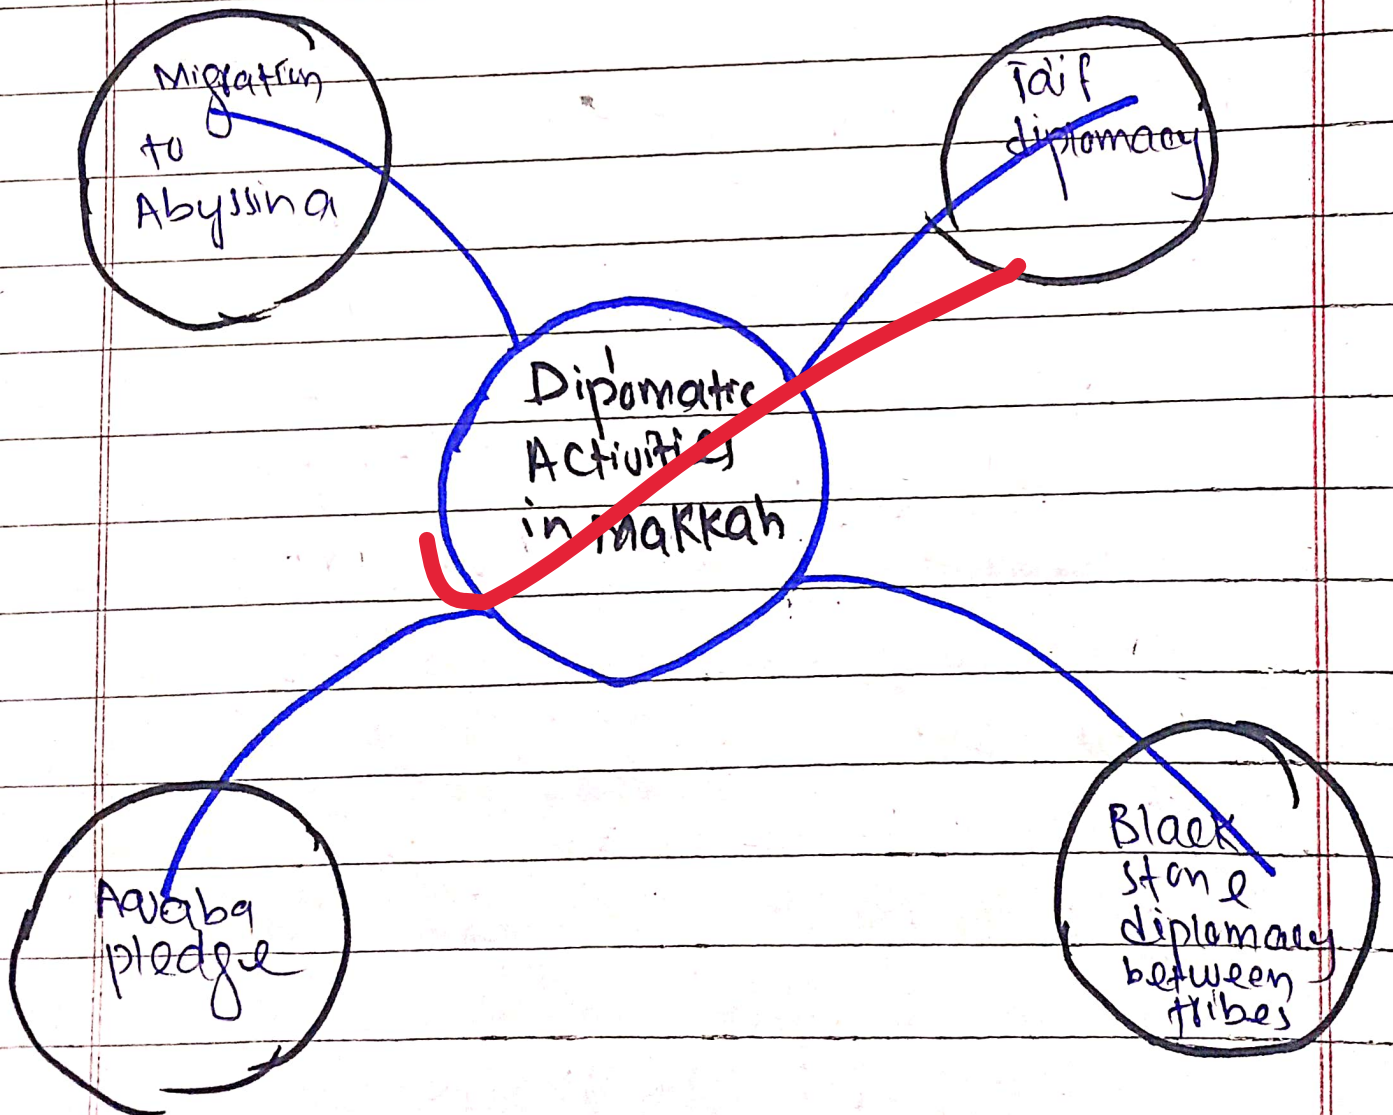 Migration
to
Abyssina
Taif
diplomacy
Diplomatic
Activities
in makkah
Aqaba
pledge
Black
stone
diplomacy
between
tribes